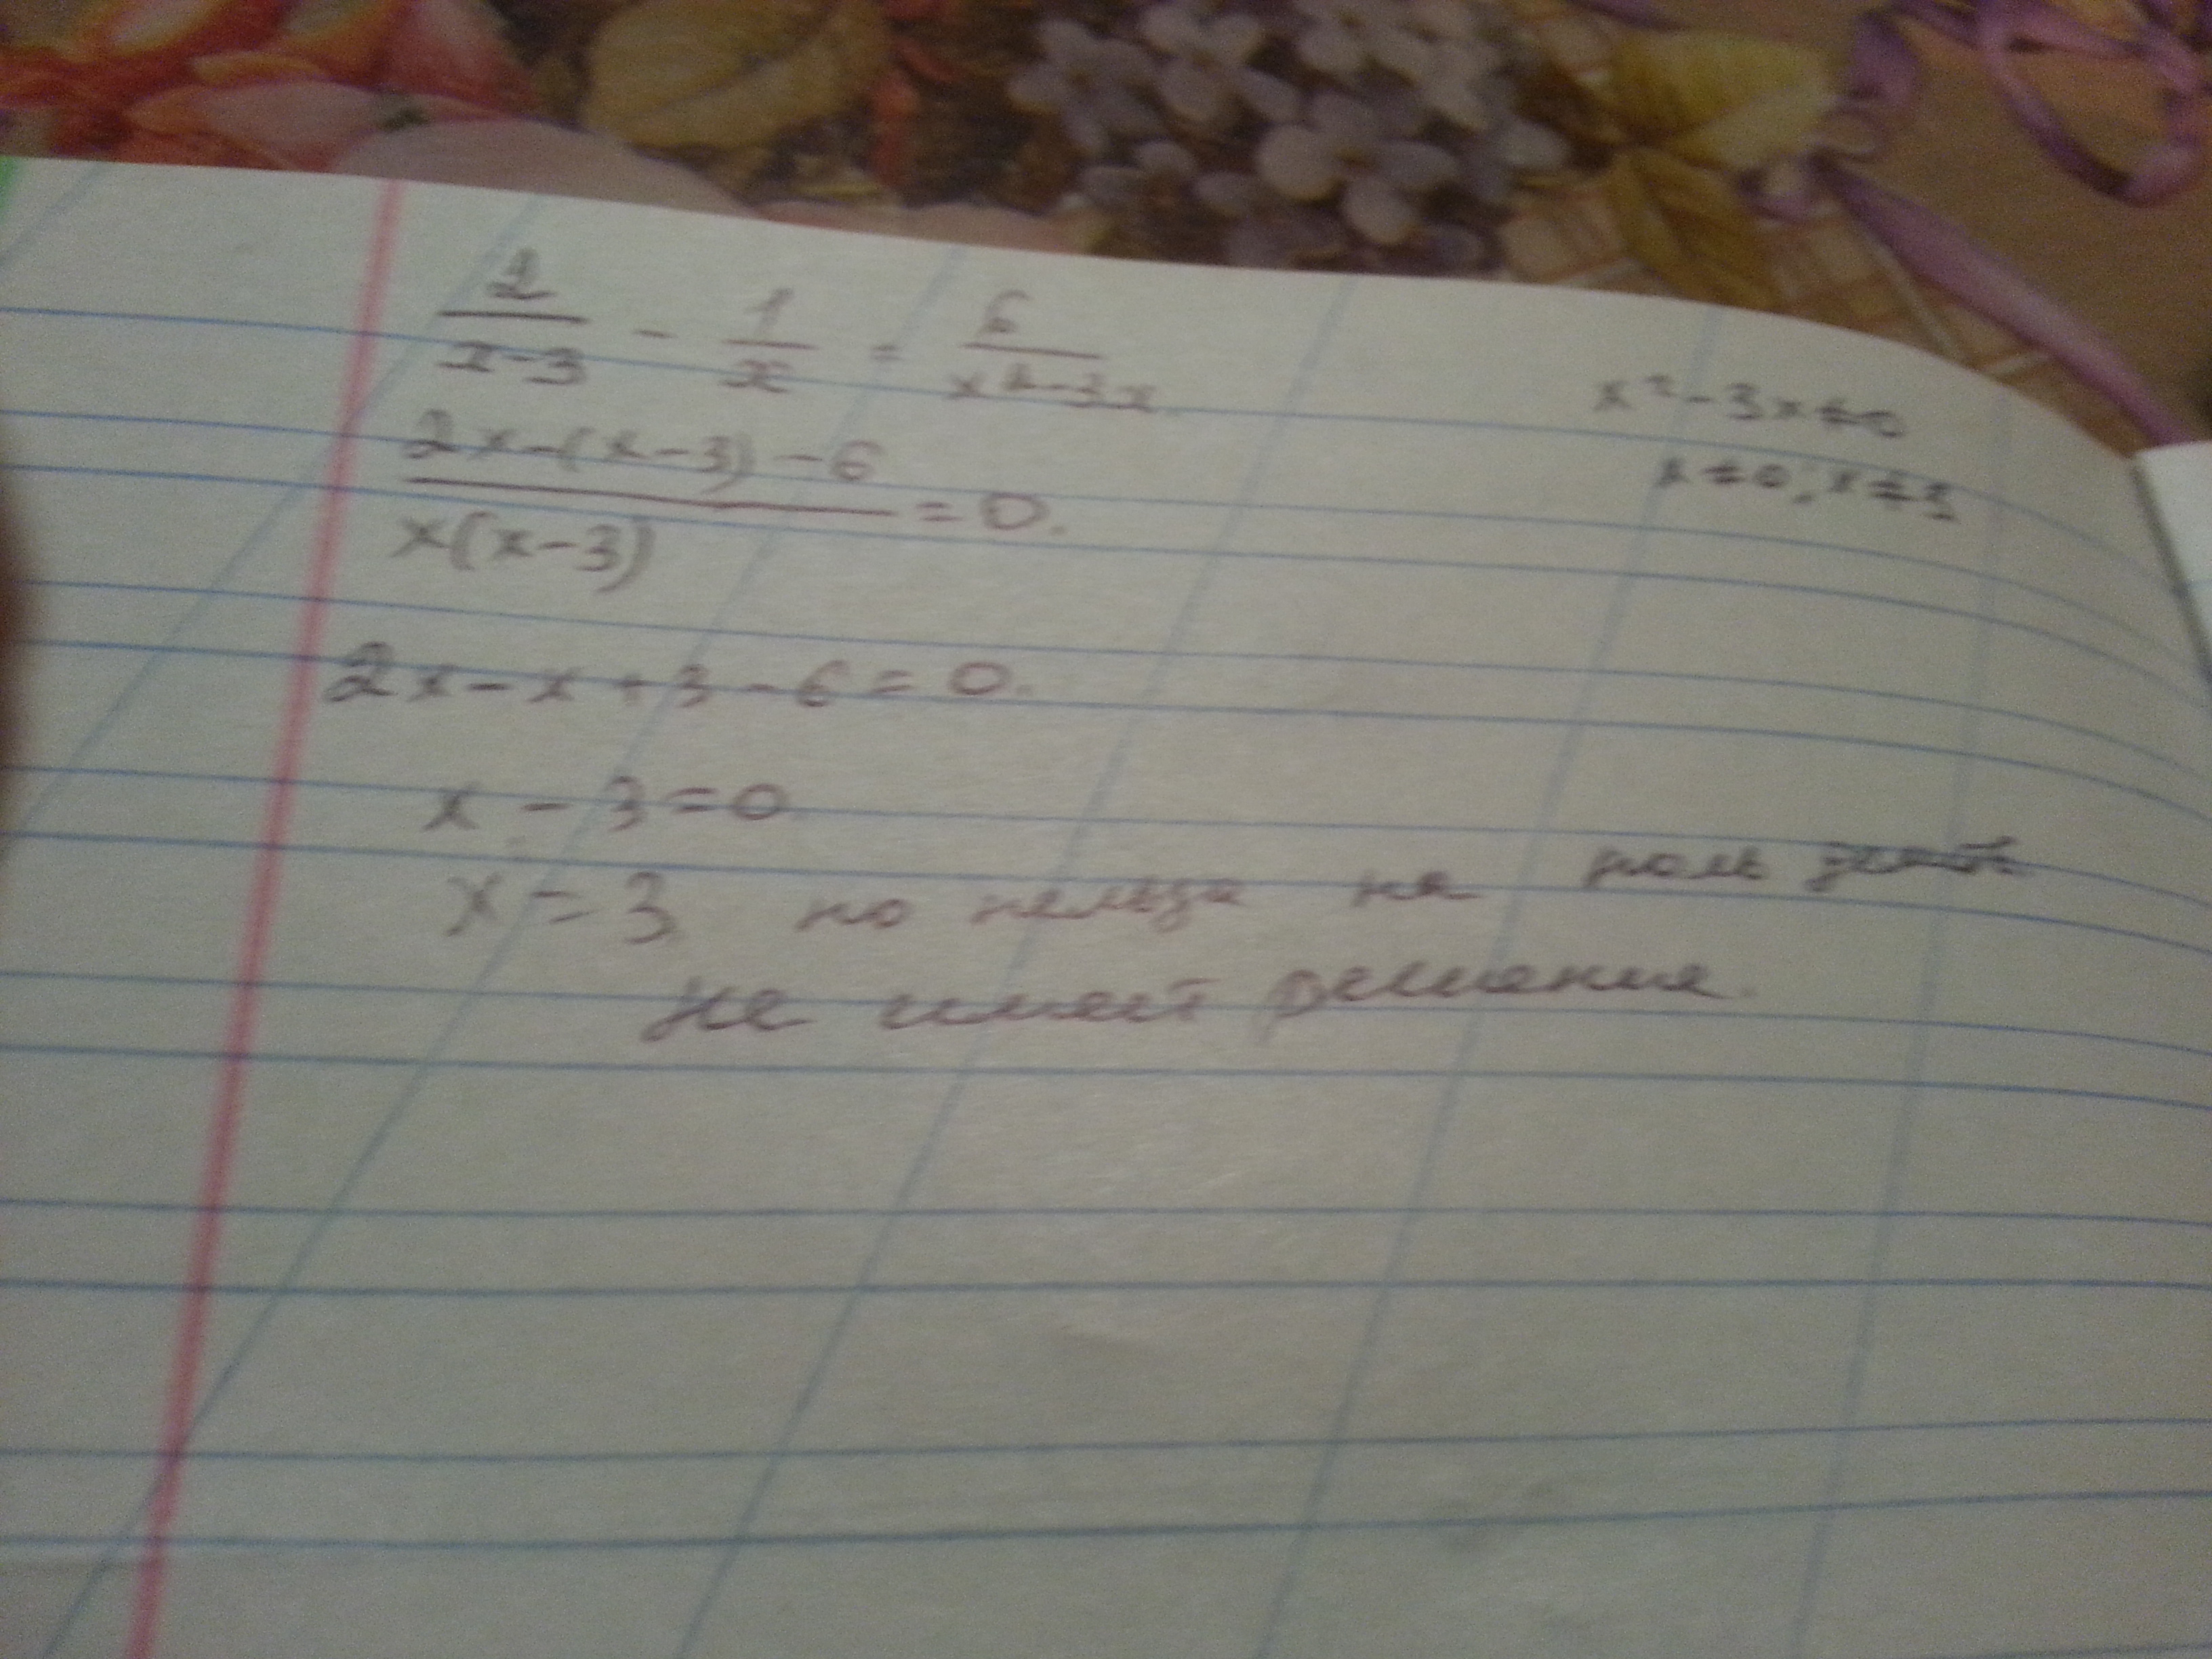 2/(x-3) - 1/x = 6/(x²-3x)
x²-3x≠0
x≠0; x≠3
(2x-(x-3)-6)/(x(x-3)) = 0.
2x-x+3-6=0.
x-3=0
x=3 но нельзя на ноль делить
не имеет решения.